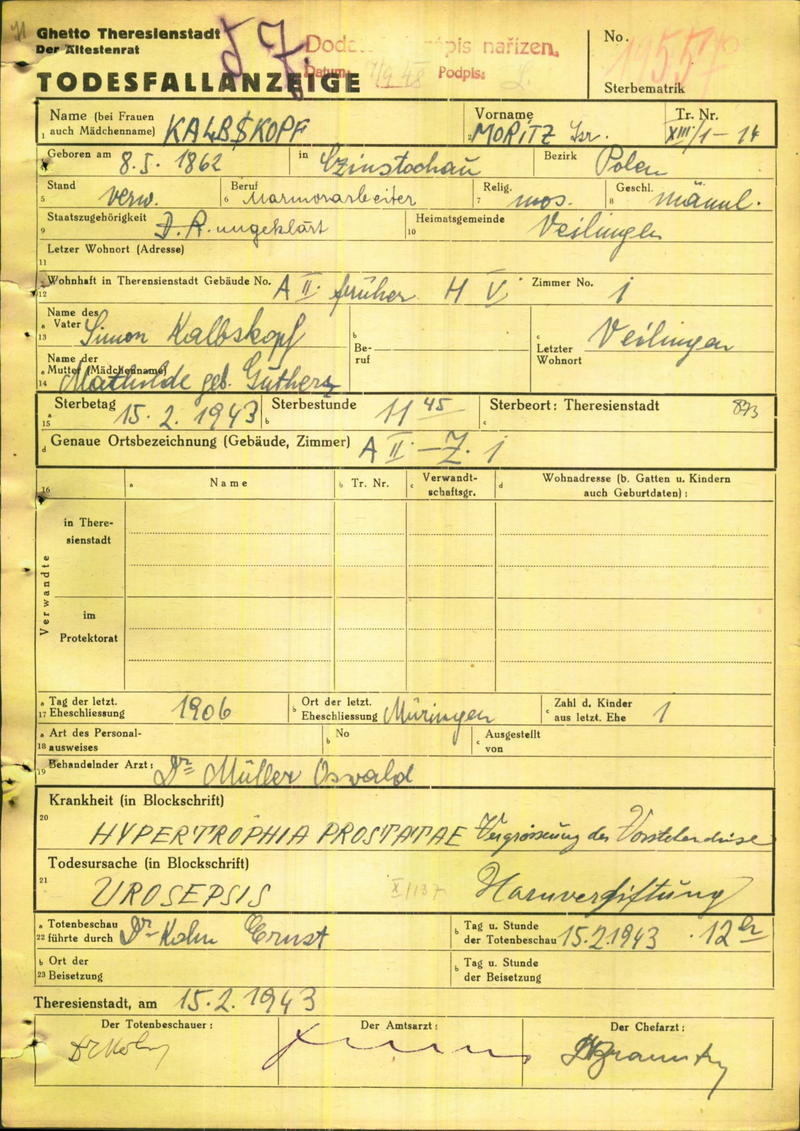 Ghetto Theresienstadt
Der Ältestenrat
TODESFALLANZEIGE
57
nařízen.
Datum: Podpis:
No.
Sterbematrik
Name (bei Frauen auch Mädchenname) KALBSKOPF
Vorname MORITZ Isr.
Tr. Nr. XIII/1-14
Geboren am 8.5. 1862 in Czinstochau Bezirk Polen
Stand verw. Beruf Marmorarbeiter Relig. mos. Geschl. männl.
Staatszugehörigkeit D.R. ungeklärt Heimatsgemeinde Veilingen
Letzer Wohnort (Adresse)
Wohnhaft in Therensienstadt Gebäude No. A II. früher H V Zimmer No. 1
Name des Vater Simon Kalbskopf
Beruf
Letzter Wohnort Veilingen
Name der Mutter (Mädchenname) Mathilde geb. Gutherz
Sterbetag 15.2.1943 Sterbestunde 11 45 Sterbeort: Theresienstadt
Genaue Ortsbezeichnung (Gebäude, Zimmer) A II - Z. 1
16 a Name b Tr. Nr. c Verwandtschaftsgr. d Wohnadresse (b. Gatten u. Kindern auch Geburtdaten):
Verwandte
in Theresienstadt
im Protektorat
a 17 Tag der letzt. Eheschliessung 1906 b Ort der letzt. Eheschliessung Müringen c Zahl d. Kinder aus letzt. Ehe 1
a 18 Art des Personalausweises b No c Ausgestellt von
19 Behandelnder Arzt: Dr Müller Osvald
Krankheit (in Blockschrift)
20 HYPERTROPHIA PROSTATAE Vergrösserung der Vorsteherdrüse
Todesursache (in Blockschrift)
21 UROSEPSIS XI/137 Harnvergiftung
a 22 Totenbeschau führte durch Dr Kohn Ernst b Tag u. Stunde der Totenbeschau 15.2.1943 . 12 h
b 23 Ort der Beisetzung b Tag u. Stunde der Beisetzung
Theresienstadt, am 15.2.1943
Der Totenbeschauer: Der Amtsarzt: Der Chefarzt: